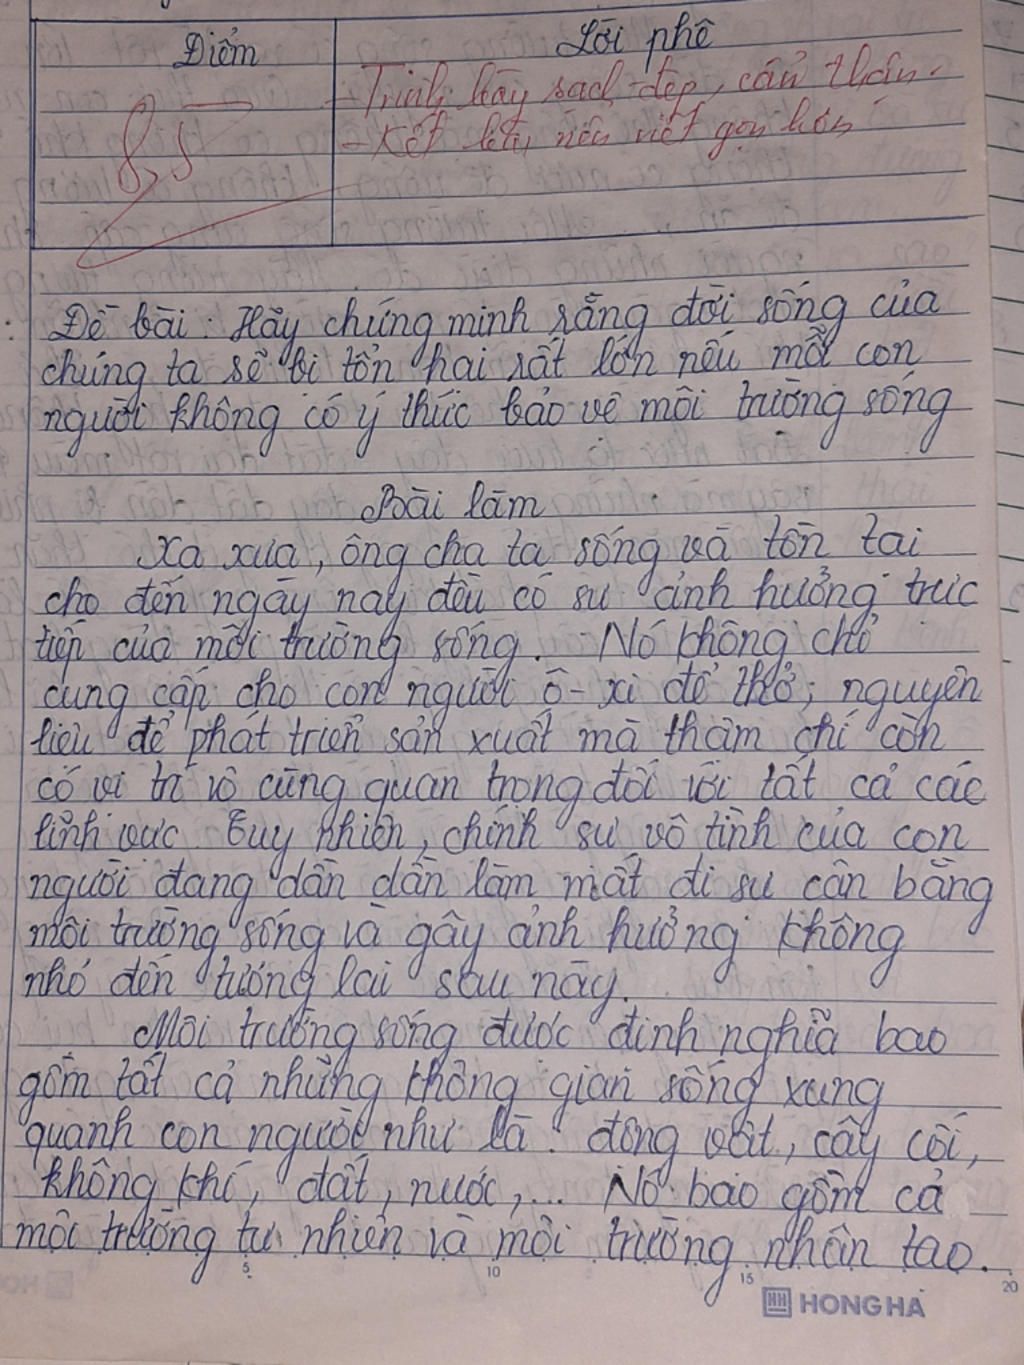 Điểm
Lời phê
8,5
- Trình bày sạch đẹp, cẩn thận.
- Kết luận nên viết gọn hơn
Đề bài: Hãy chứng minh rằng đời sống của
chúng ta sẽ bị tổn hại rất lớn nếu mỗi con
người không có ý thức bảo vệ môi trường sống
Bài làm
Xa xưa, ông cha ta sống và tồn tại
cho đến ngày nay đều có sự ảnh hưởng trực
tiếp của môi trường sống. Nó không chỉ
cung cấp cho con người ô-xi để thở, nguyên
liệu để phát triển sản xuất mà thậm chí còn
có vị trí vô cùng quan trọng đối với tất cả các
lĩnh vực. Tuy nhiên, chính sự vô tình của con
người đang dần dần làm mất đi sự cân bằng
môi trường sống và gây ảnh hưởng không
nhỏ đến tương lai sau này.
Môi trường sống được định nghĩa bao
gồm tất cả những không gian sống xung
quanh con người như là: động vật, cây cối,
không khí, đất, nước,... Nó bao gồm cả
môi trường tự nhiên và môi trường nhân tạo.
5 10 15 20
HH HONG HA